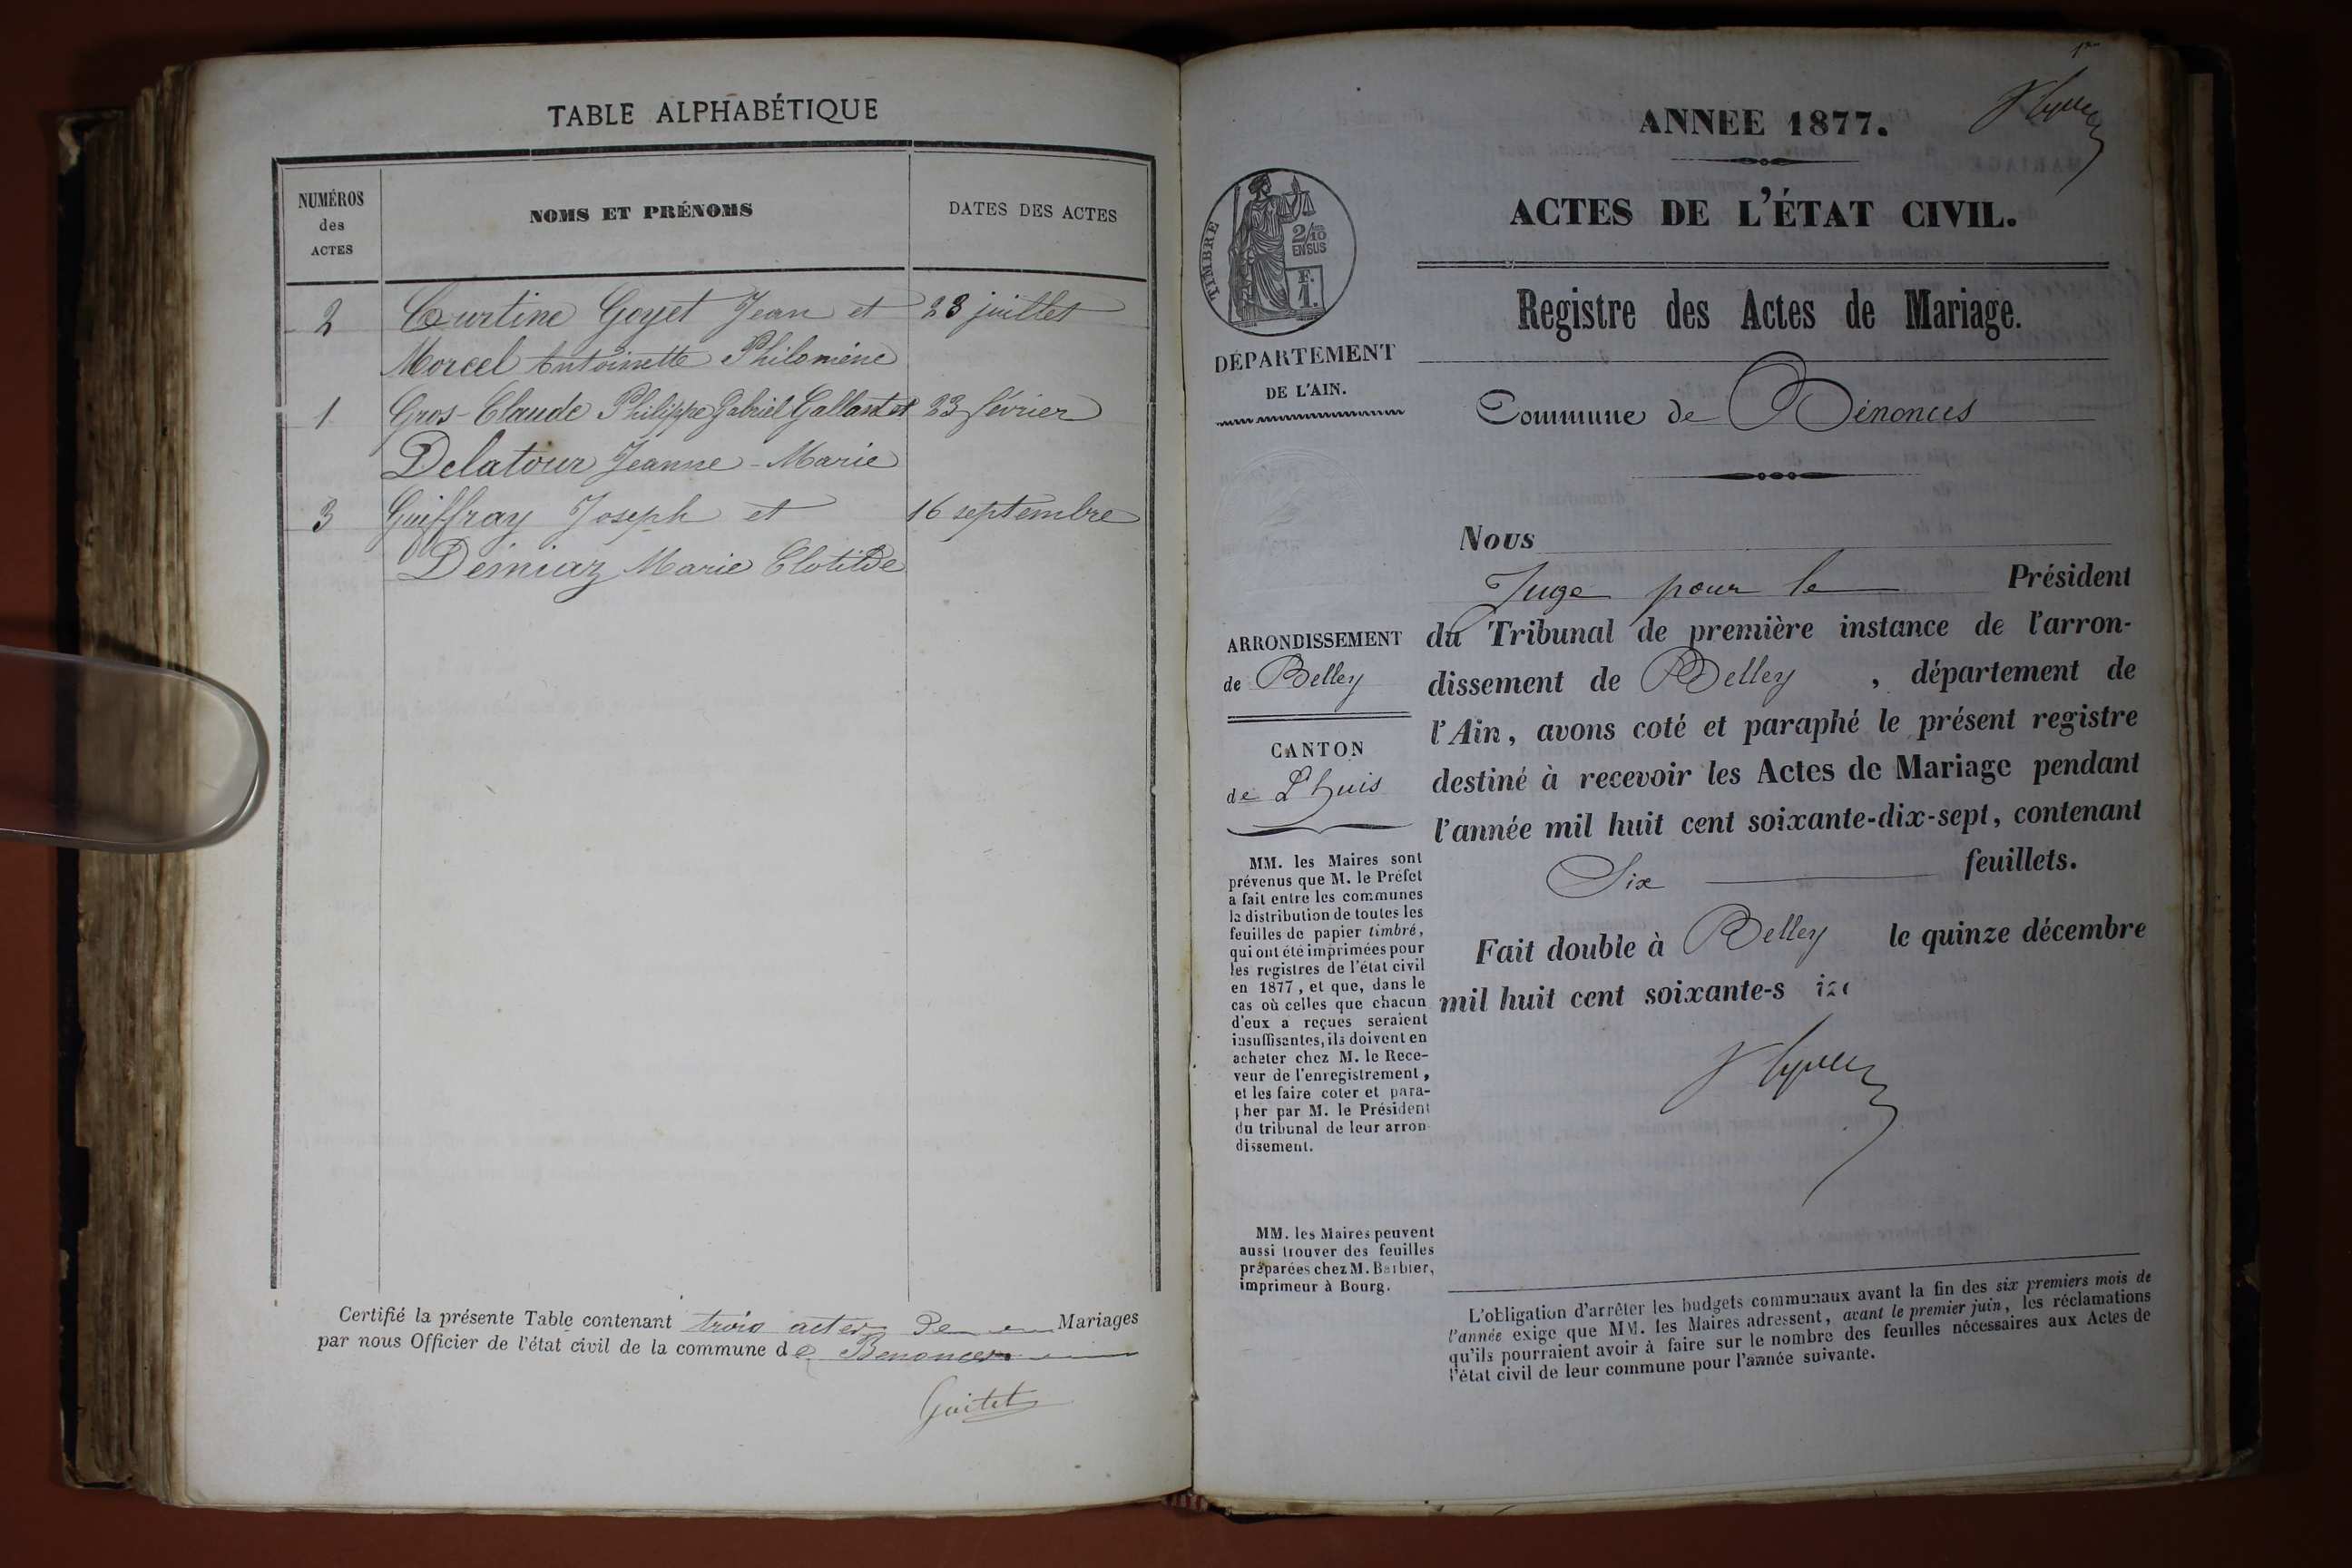 TABLE ALPHABÉTIQUE
NUMÉROS
des
ACTES
NOMS ET PRÉNOMS
DATES DES ACTES
2 Courtine Goyet Jean et 28 juillet
Morcel Antoinette Philomène
1 Gros-Claude Philippe Gabriel Galland et 23 février
Delatour Jeanne-Marie
3 Guiffray Joseph et 16 septembre
Demiaz Marie Clotilde
Certifié la présente Table contenant trois actes de Mariages
par nous Officier de l'état civil de la commune de Benonces
Guitet
1er
ANNEE 1877.
ACTES DE L'ÉTAT CIVIL.
TIMBRE
2/10
EN SUS
F.
1.
Registre des Actes de Mariage.
DÉPARTEMENT
DE L'AIN.
Commune de Bénonces
Nous
Juge pour le Président
du Tribunal de première instance de l'arron-
dissement de Belley, département de
l'Ain, avons coté et paraphé le présent registre
destiné à recevoir les Actes de Mariage pendant
l'année mil huit cent soixante-dix-sept, contenant
Six feuillets.
Fait double à Belley le quinze décembre
mil huit cent soixante-s ize
ARRONDISSEMENT
de Belley
CANTON
de Lhuis
MM. les Maires sont
prévenus que M. le Préfet
a fait entre les communes
la distribution de toutes les
feuilles de papier timbré,
qui ont été imprimées pour
les registres de l'état civil
en 1877, et que, dans le
cas où celles que chacun
d'eux a reçues seraient
insuffisantes, ils doivent en
acheter chez M. le Rece-
veur de l'enregistrement,
et les faire coter et para-
pher par M. le Président
du tribunal de leur arron-
dissement.
MM. les Maires peuvent
aussi trouver des feuilles
préparées chez M. Barbier,
imprimeur à Bourg.
L'obligation d'arrêter les budgets communaux avant la fin des six premiers mois de
l'année exige que MM. les Maires adressent, avant le premier juin, les réclamations
qu'ils pourraient avoir à faire sur le nombre des feuilles nécessaires aux Actes de
l'état civil de leur commune pour l'année suivante.